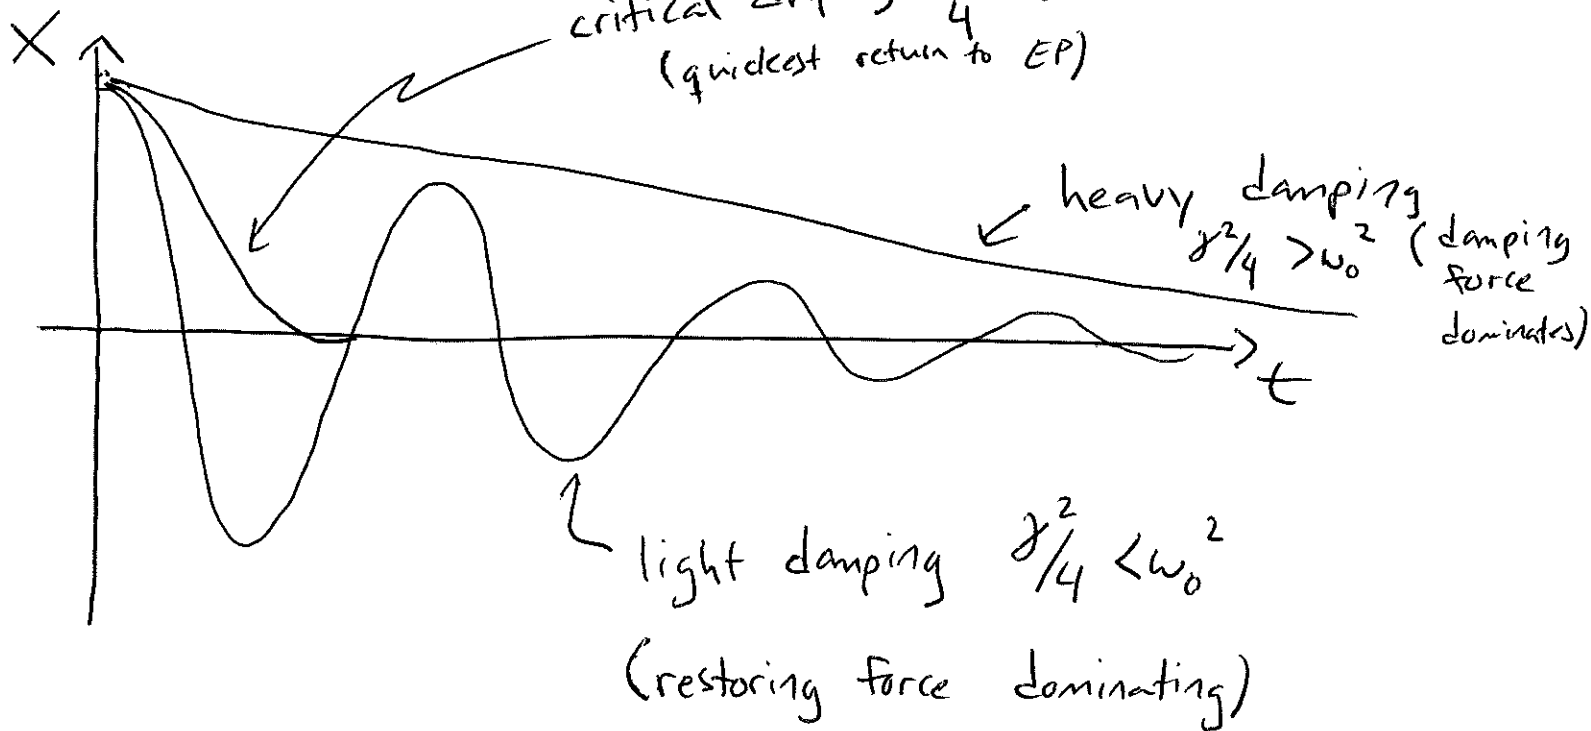 critical
4
(quickest return to EP)
X
heavy damping
γ²/4 > ω₀² (damping
force
dominates)
t
light damping γ²/4 < ω₀²
(restoring force dominating)